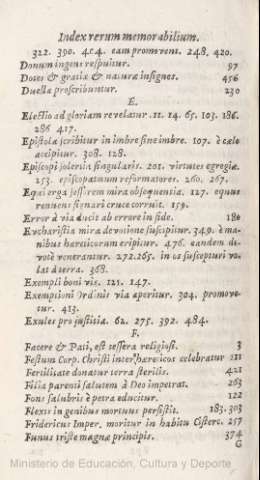 Index rerum memorabilium.
322. 390. 404. eam promovent. 248. 420.
Donum ingens respuitur. 97
Dotes & gratiæ & naturæ insignes. 456
Duella proscribuntur. 230
E.
Electio ad gloriam revelatur. 11. 14. 65. 103. 186.
286. 417.
Epistola scribitur in imbre sine imbre. 107. è cælo
accipitur. 308. 128.
Episcopi solertia singularis. 201. virtutes egregiæ.
253. episcopatuum reformatores. 260. 267.
Equi erga jessirem mira obsequentia. 127. equus
renuens firmari cruce corruit. 159
Error à via ducis ab errore in fide. 180
Eucharistia mira devotione suscipitur. 349. è ma-
nibus hæreticorum eripitur. 476. eandem de-
votè venerantur. 272. 265. in os suscepturi vo-
lat à terra. 368.
Exempli boni vis. 121. 147.
Exemptioni Ordinis via aperitur. 304. promove-
tur. 413.
Exules pro justitia. 62. 275. 392. 484.
F.
Facere & Pati, est tessera religiosi. 3
Festum Corp. Christi inter hæreticos celebratur 211
Fertilitate donatur terra sterilis. 421
Filia parenti salutem à Deo impetrat. 263
Fons salubris è petra educitur. 122
Flexis in genibus mortuus persistit. 183. 303
Fridericus Imper. moritur in habitu Cisterc. 257
Funus triste magnæ principis. 374
G
Ministerio de Educación, Cultura y Deporte